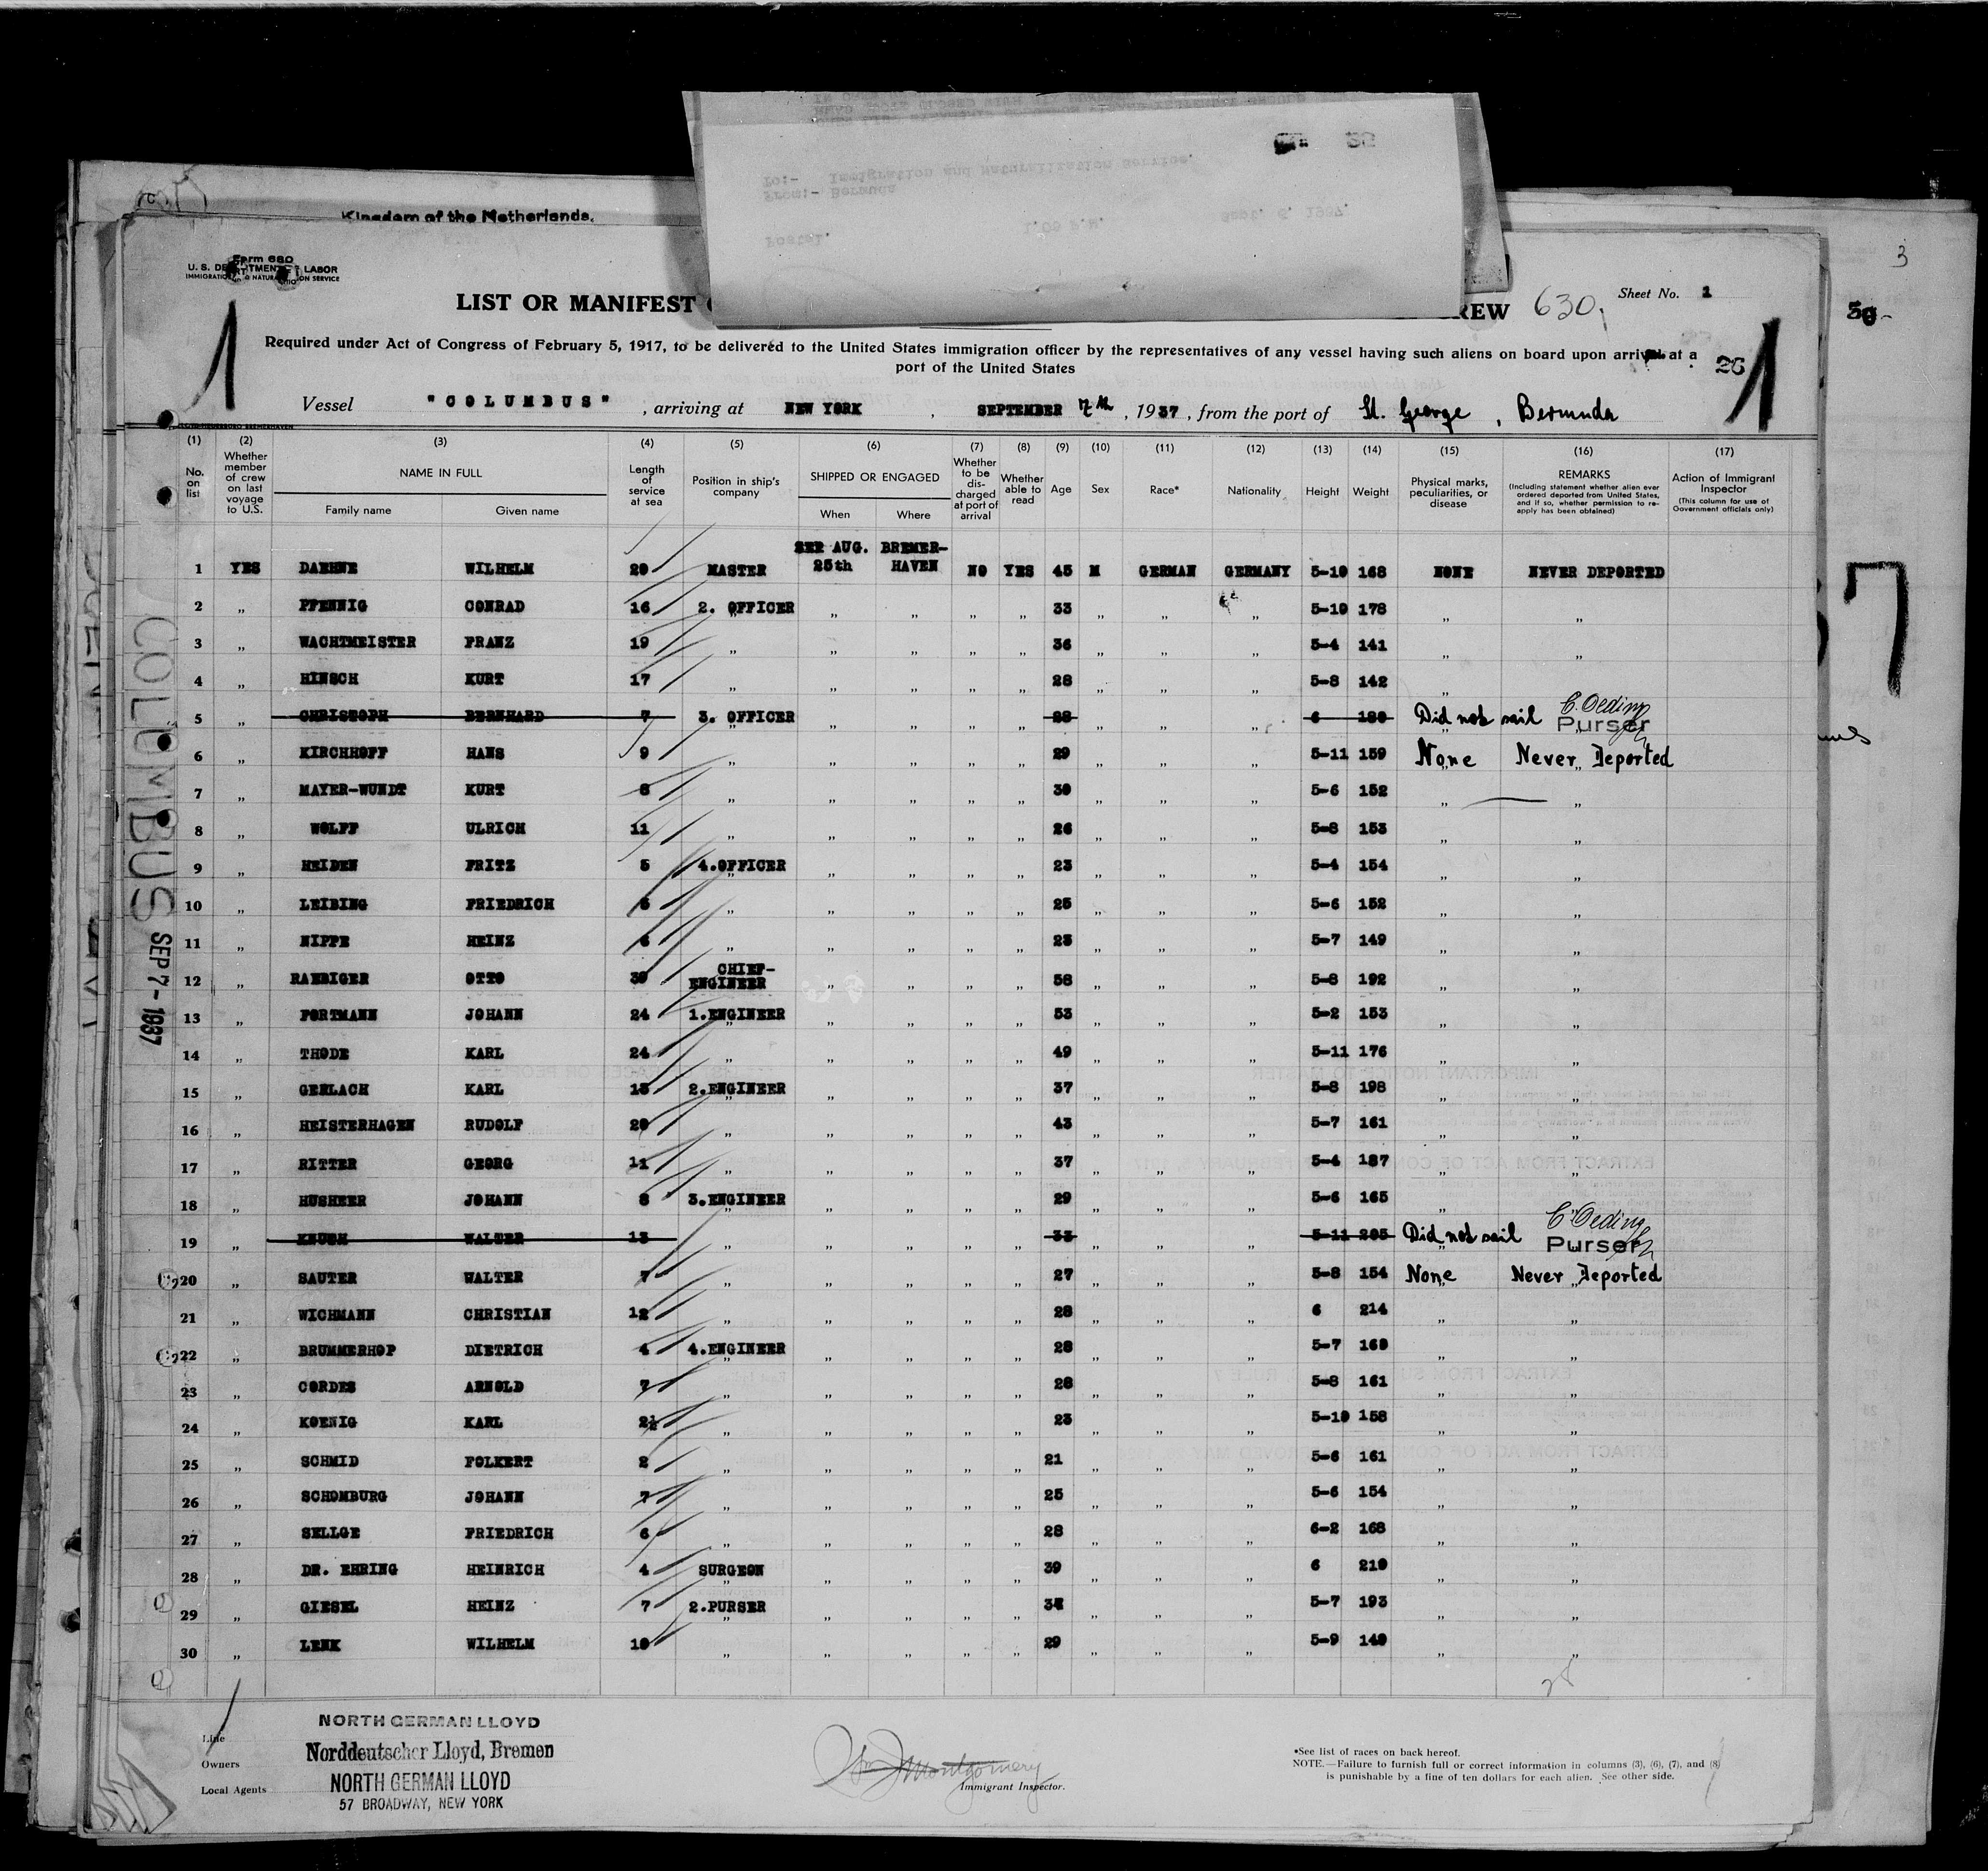 Kingdom of the Netherlands.
To:- Immigration and Naturalization Service.
From:- Bermuda
Postal. 1.00 P.M. Sept. 6, 1937.
Form 680
U. S. DEPARTMENT OF LABOR
IMMIGRATION & NATURALIZATION SERVICE
1
LIST OR MANIFEST
REW 630 Sheet No. 1
Required under Act of Congress of February 5, 1917, to be delivered to the United States immigration officer by the representatives of any vessel having such aliens on board upon arrival at a
port of the United States
26 1
Vessel "COLUMBUS", arriving at NEW YORK, SEPTEMBER 7th, 1937, from the port of St. George, Bermuda
(1) (2) (3) (4) (5) (6) (7) (8) (9) (10) (11) (12) (13) (14) (15) (16) (17)
No. on list
Whether member of crew on last voyage to U.S.
NAME IN FULL
Family name Given name
Length of service at sea
Position in ship's company
SHIPPED OR ENGAGED
When Where
Whether to be discharged at port of arrival
Whether able to read
Age
Sex
Race*
Nationality
Height
Weight
Physical marks, peculiarities, or disease
REMARKS
(Including statement whether alien ever ordered deported from United States, and if so, whether permission to re-apply has been obtained)
Action of Immigrant Inspector
(This column for use of Government officials only)
1 YES DAEHNE WILHELM 20 MASTER AUG. 25th BREMER-HAVEN NO YES 45 M GERMAN GERMANY 5-10 168 NONE NEVER DEPORTED
2 " PFENNIG CONRAD 16 2. OFFICER " " " " 33 " " " 5-10 178 " "
3 " WACHTMEISTER FRANZ 19 " " " " " 36 " " " 5-4 141 " "
4 " HINSCH KURT 17 " " " " " 28 " " " 5-8 142 " "
5 " CHRISTOPH BERNHARD 7 3. OFFICER " " " " 28 " " " 6 180 Did not sail C. Oeding Purser
6 " KIRCHHOFF HANS 9 " " " " " 29 " " " 5-11 159 None Never Deported
7 " MAYER-WUNDT KURT 8 " " " " " 30 " " " 5-6 152 " "
8 " WOLFF ULRICH 11 " " " " " 26 " " " 5-8 153 " "
9 " HEIDEN FRITZ 5 4.OFFICER " " " " 23 " " " 5-4 154 " "
10 " LEIBING FRIEDRICH 6 " " " " " 25 " " " 5-6 152 " "
11 " NIPPE HEINZ 6 " " " " " 23 " " " 5-7 149 " "
12 " RAEBIGER OTTO 30 CHIEF-ENGINEER " " " " 58 " " " 5-8 192 " "
13 " PORTMANN JOHANN 24 1.ENGINEER " " " " 53 " " " 5-2 153 " "
14 " THODE KARL 24 " " " " " 49 " " " 5-11 176 " "
15 " GERLACH KARL 13 2.ENGINEER " " " " 37 " " " 5-8 198 " "
16 " HEISTERHAGEN RUDOLF 20 " " " " " 43 " " " 5-7 161 " "
17 " RITTER GEORG 11 " " " " " 37 " " " 5-4 187 " "
18 " HUSHEER JOHANN 8 3.ENGINEER " " " " 29 " " " 5-6 165 " "
19 " WALTER 13 " " " " " 33 " " " 5-11 205 Did not sail C. Oeding Purser
20 " SAUTER WALTER 7 " " " " " 27 " " " 5-8 154 None Never Deported
21 " WICHMANN CHRISTIAN 12 " " " " " 28 " " " 6 214 " "
22 " BRUMMERHOP DIETRICH 4 4.ENGINEER " " " " 28 " " " 5-7 160 " "
23 " CORDES ARNOLD 7 " " " " " 28 " " " 5-8 161 " "
24 " KOENIG KARL 2½ " " " " " 23 " " " 5-10 158 " "
25 " SCHMID FOLKERT 2 " " " " " 21 " " " 5-6 161 " "
26 " SCHOMBURG JOHANN 7 " " " " " 25 " " " 5-6 154 " "
27 " SELLGE FRIEDRICH 6 " " " " " 28 " " " 6-2 168 " "
28 " DR. EHRING HEINRICH 4 SURGEON " " " " 39 " " " 6 210 " "
29 " GIESEL HEINZ 7 2.PURSER " " " " " " " 5-7 193 " "
30 " LENK WILHELM 10 " " " " " 29 " " " 5-9 140 " "
COLUMBUS SEP 7 - 1937
28
Line NORTH GERMAN LLOYD
Owners Norddeutscher Lloyd, Bremen
Local Agents NORTH GERMAN LLOYD
57 BROADWAY, NEW YORK
Montgomery
Immigrant Inspector.
*See list of races on back hereof.
NOTE.—Failure to furnish full or correct information in columns (3), (6), (7), and (8)
is punishable by a fine of ten dollars for each alien. See other side.
3
7